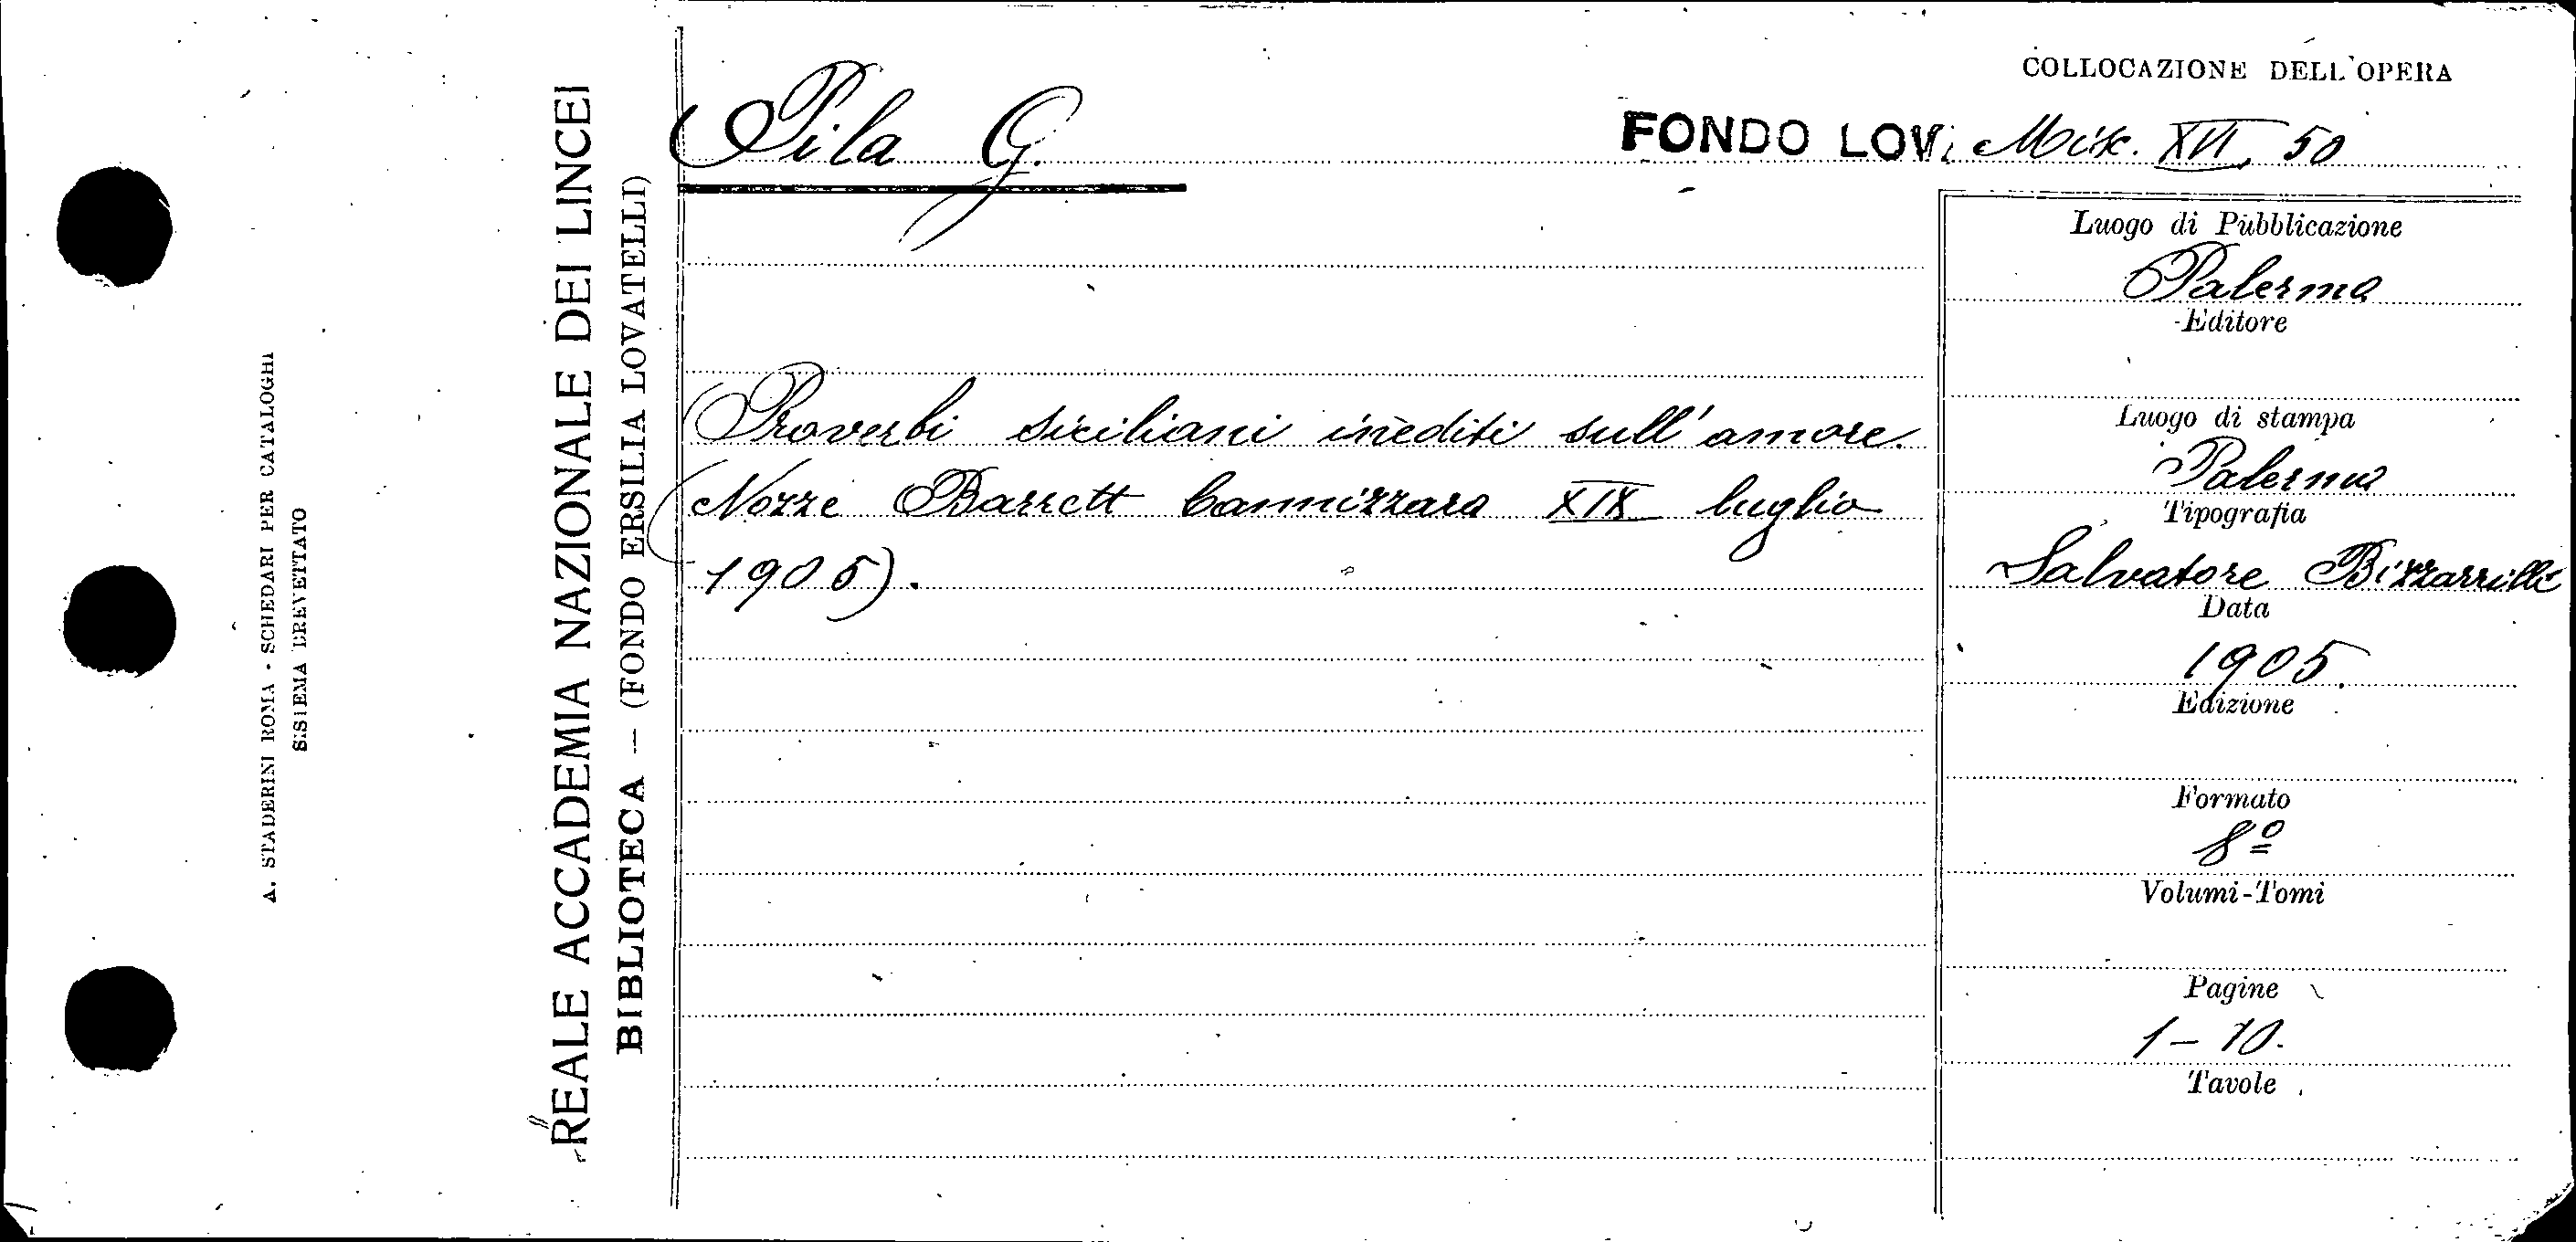 A. STADERINI ROMA - SCHEDARI PER CATALOGHI
SISTEMA BREVETTATO
REALE ACCADEMIA NAZIONALE DEI LINCEI
BIBLIOTECA — (FONDO ERSILIA LOVATELLI)
Pila G.
COLLOCAZIONE DELL'OPERA
FONDO LOV. Misc. XVI, 50
Proverbi siciliani inediti sull'amore.
(Nozze Barrett Cannizzaro XIX luglio
1905).
Luogo di Pubblicazione
Palermo
Editore
Luogo di stampa
Palermo
Tipografia
Salvatore Bizzarrilli
Data
1905.
Edizione
Formato
8º
Volumi-Tomi
Pagine
1-10.
Tavole